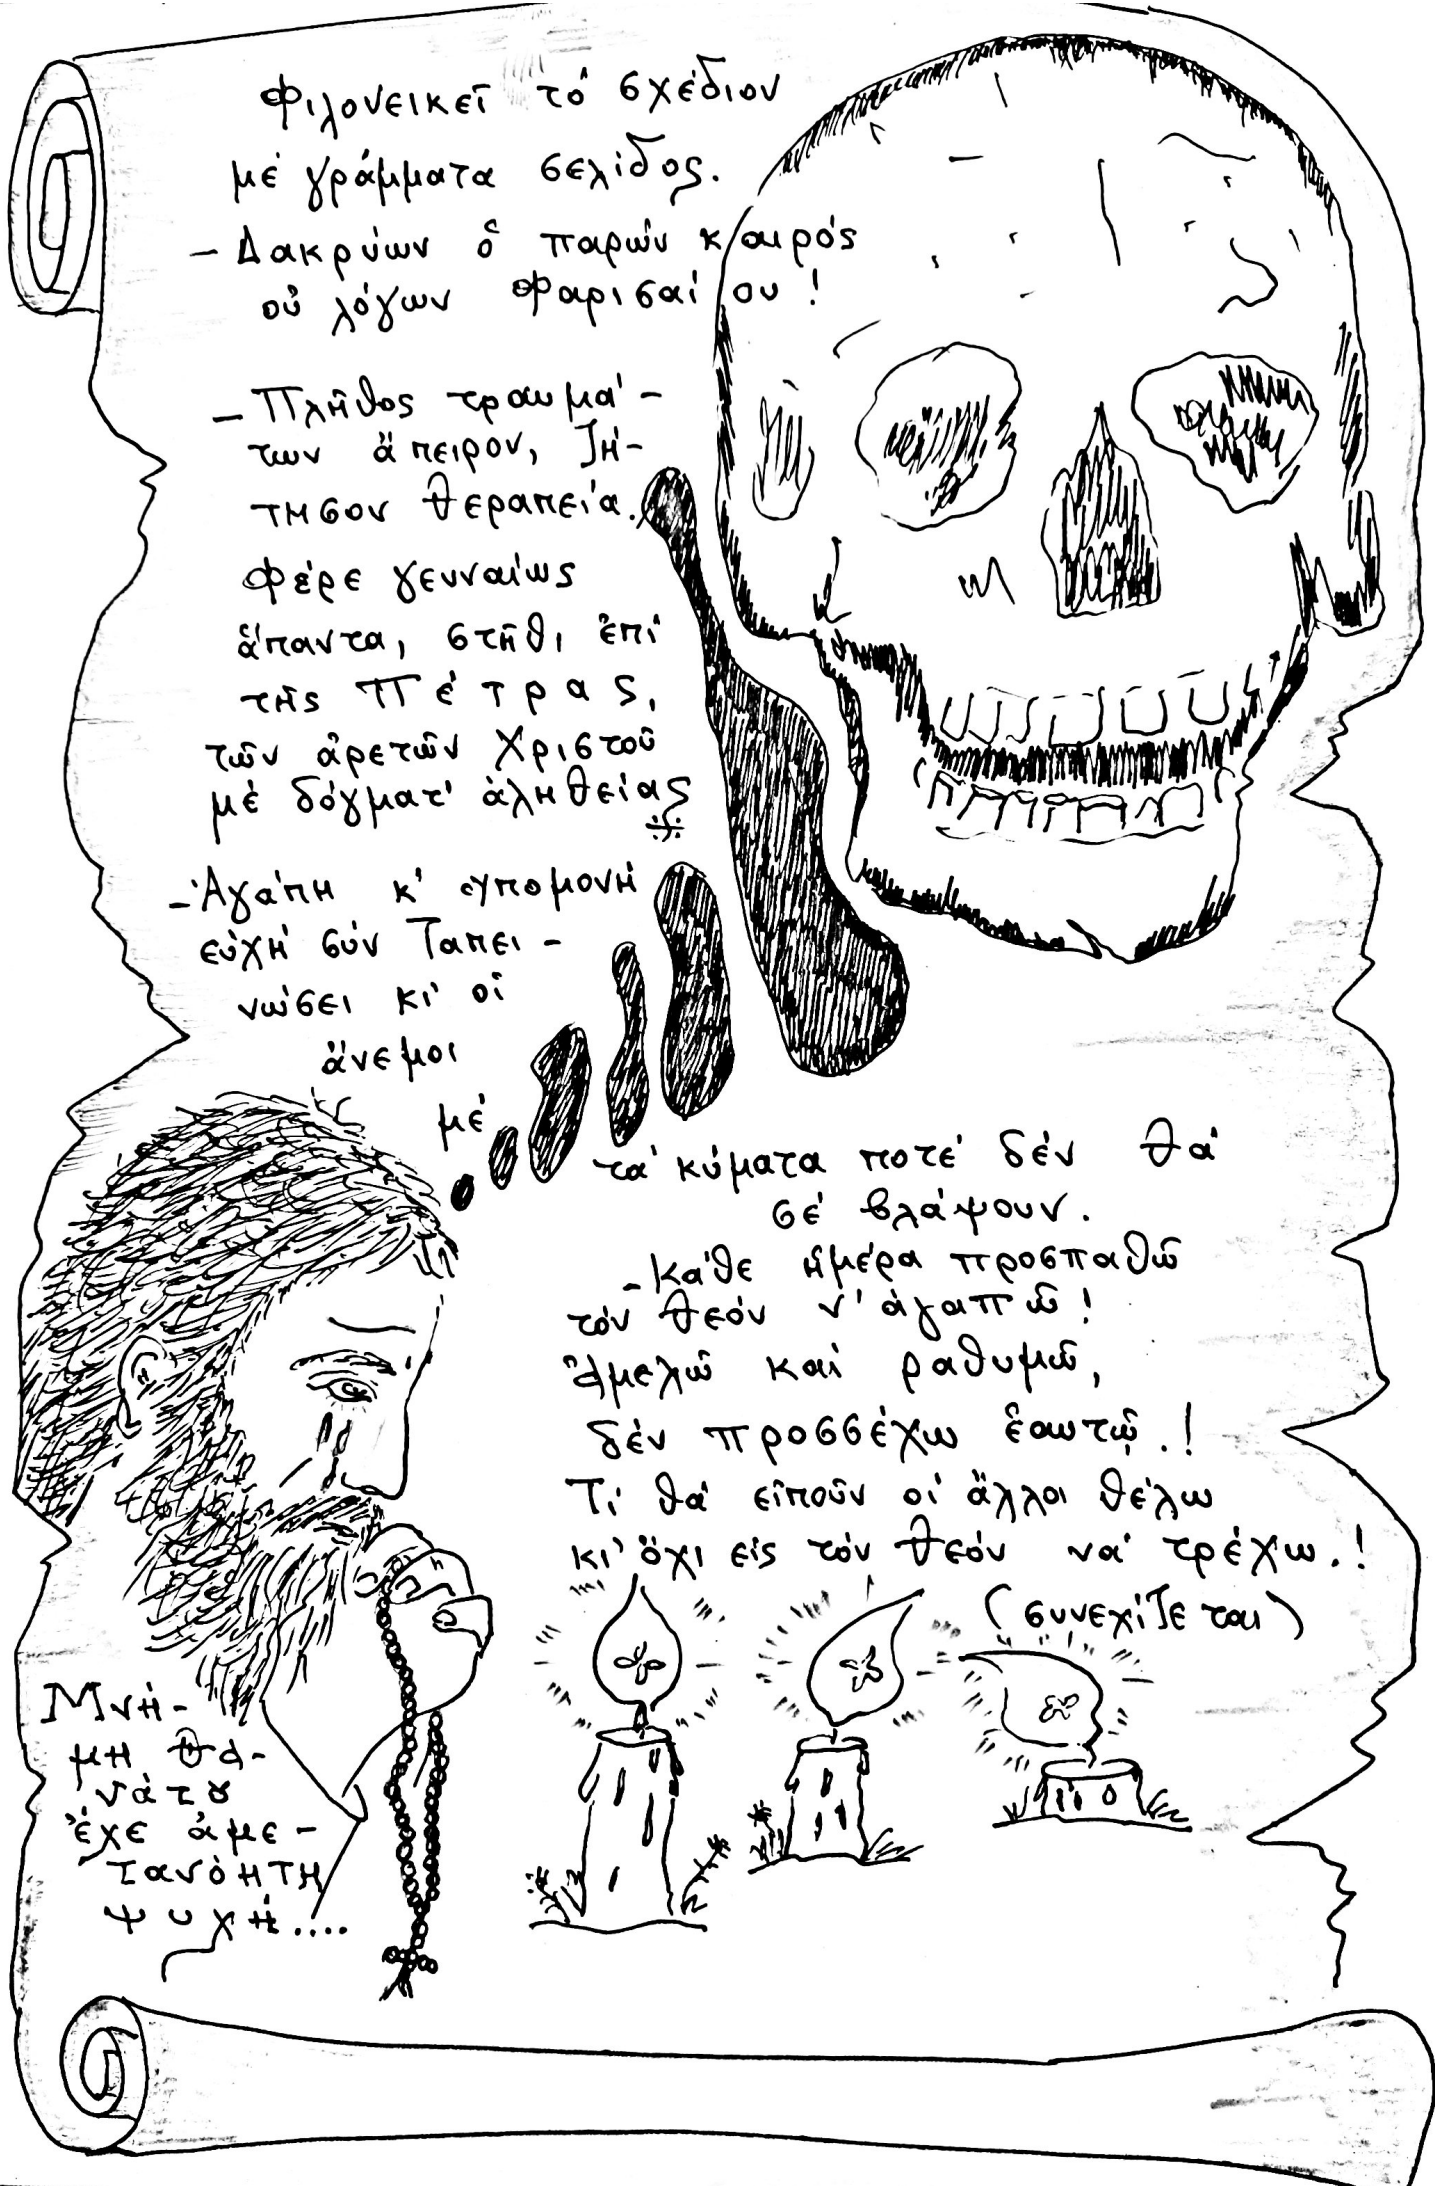 Φιλονεικεῖ τό σχέδιον
μέ γράμματα σελίδος.
– Δακρύων ὁ παρών καιρός
οὐ λόγων Φαρισαίου!
– Πλῆθος τραυμά-
των ἄπειρον, Ζή-
τησον θεραπεία.
Φέρε γενναίως
ἅπαντα, στῆθι ἐπί
τῆς Πέτρας,
τῶν ἀρετῶν Χριστοῦ
μέ δόγματ' ἀληθείας
– Ἀγάπη κ' ὑπομονή
εὐχή σύν Ταπει-
νώσει κι' οἱ
ἄνεμοι
μέ
τά κύματα ποτέ δέν θά
σέ βλάψουν.
– Κάθε ἡμέρα προσπαθῶ
τόν Θεόν ν' ἀγαπῶ!
Ἀμελῶ καί ραθυμῶ,
δέν προσσέχω ἑαυτῷ.!
Τί θά εἰποῦν οἱ ἄλλοι θέλω
κι' ὄχι εἰς τόν Θεόν νά τρέχω.!
(συνεχίζεται)
Μνή-
μη θα-
νάτȣ
ἔχε ἀμε-
τανόητη
ψυχή....